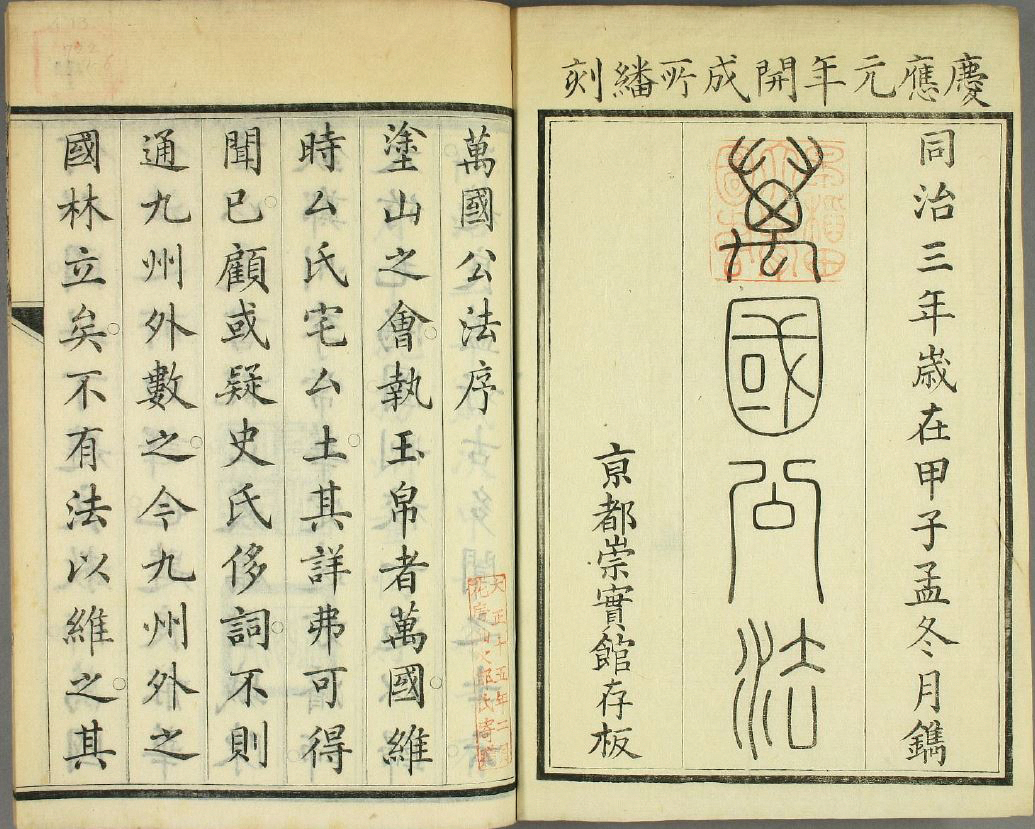 慶應元年開成所繙刻
同治三年歲在甲子孟冬月鐫
萬國公法
京都崇實館存板
萬國公法序
塗山之會執玉帛者萬國維
時厶氏宅厶土其詳弗可得
聞已顧或疑史氏侈詞不則
通九州外數之今九州外之
國林立矣不有法以維之其
大正十五年二月